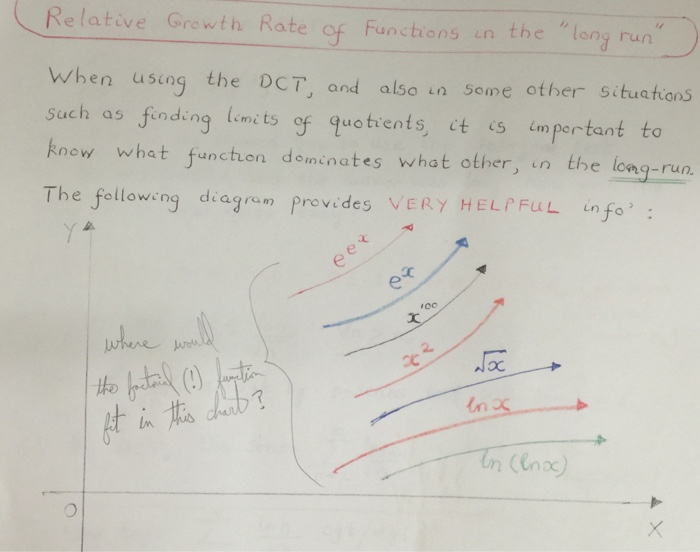 Relative Growth Rate of Functions in the "long run"
When using the DCT, and also in some other situations
such as finding limits of quotients, it is important to
know what function dominates what other, in the long-run.
The following diagram provides VERY HELPFUL info' :
Y
e^e^x
e^x
x^100
x^2
√x
ln x
ln (ln x)
where would
the factorial (!) function
fit in this chart?
O
X